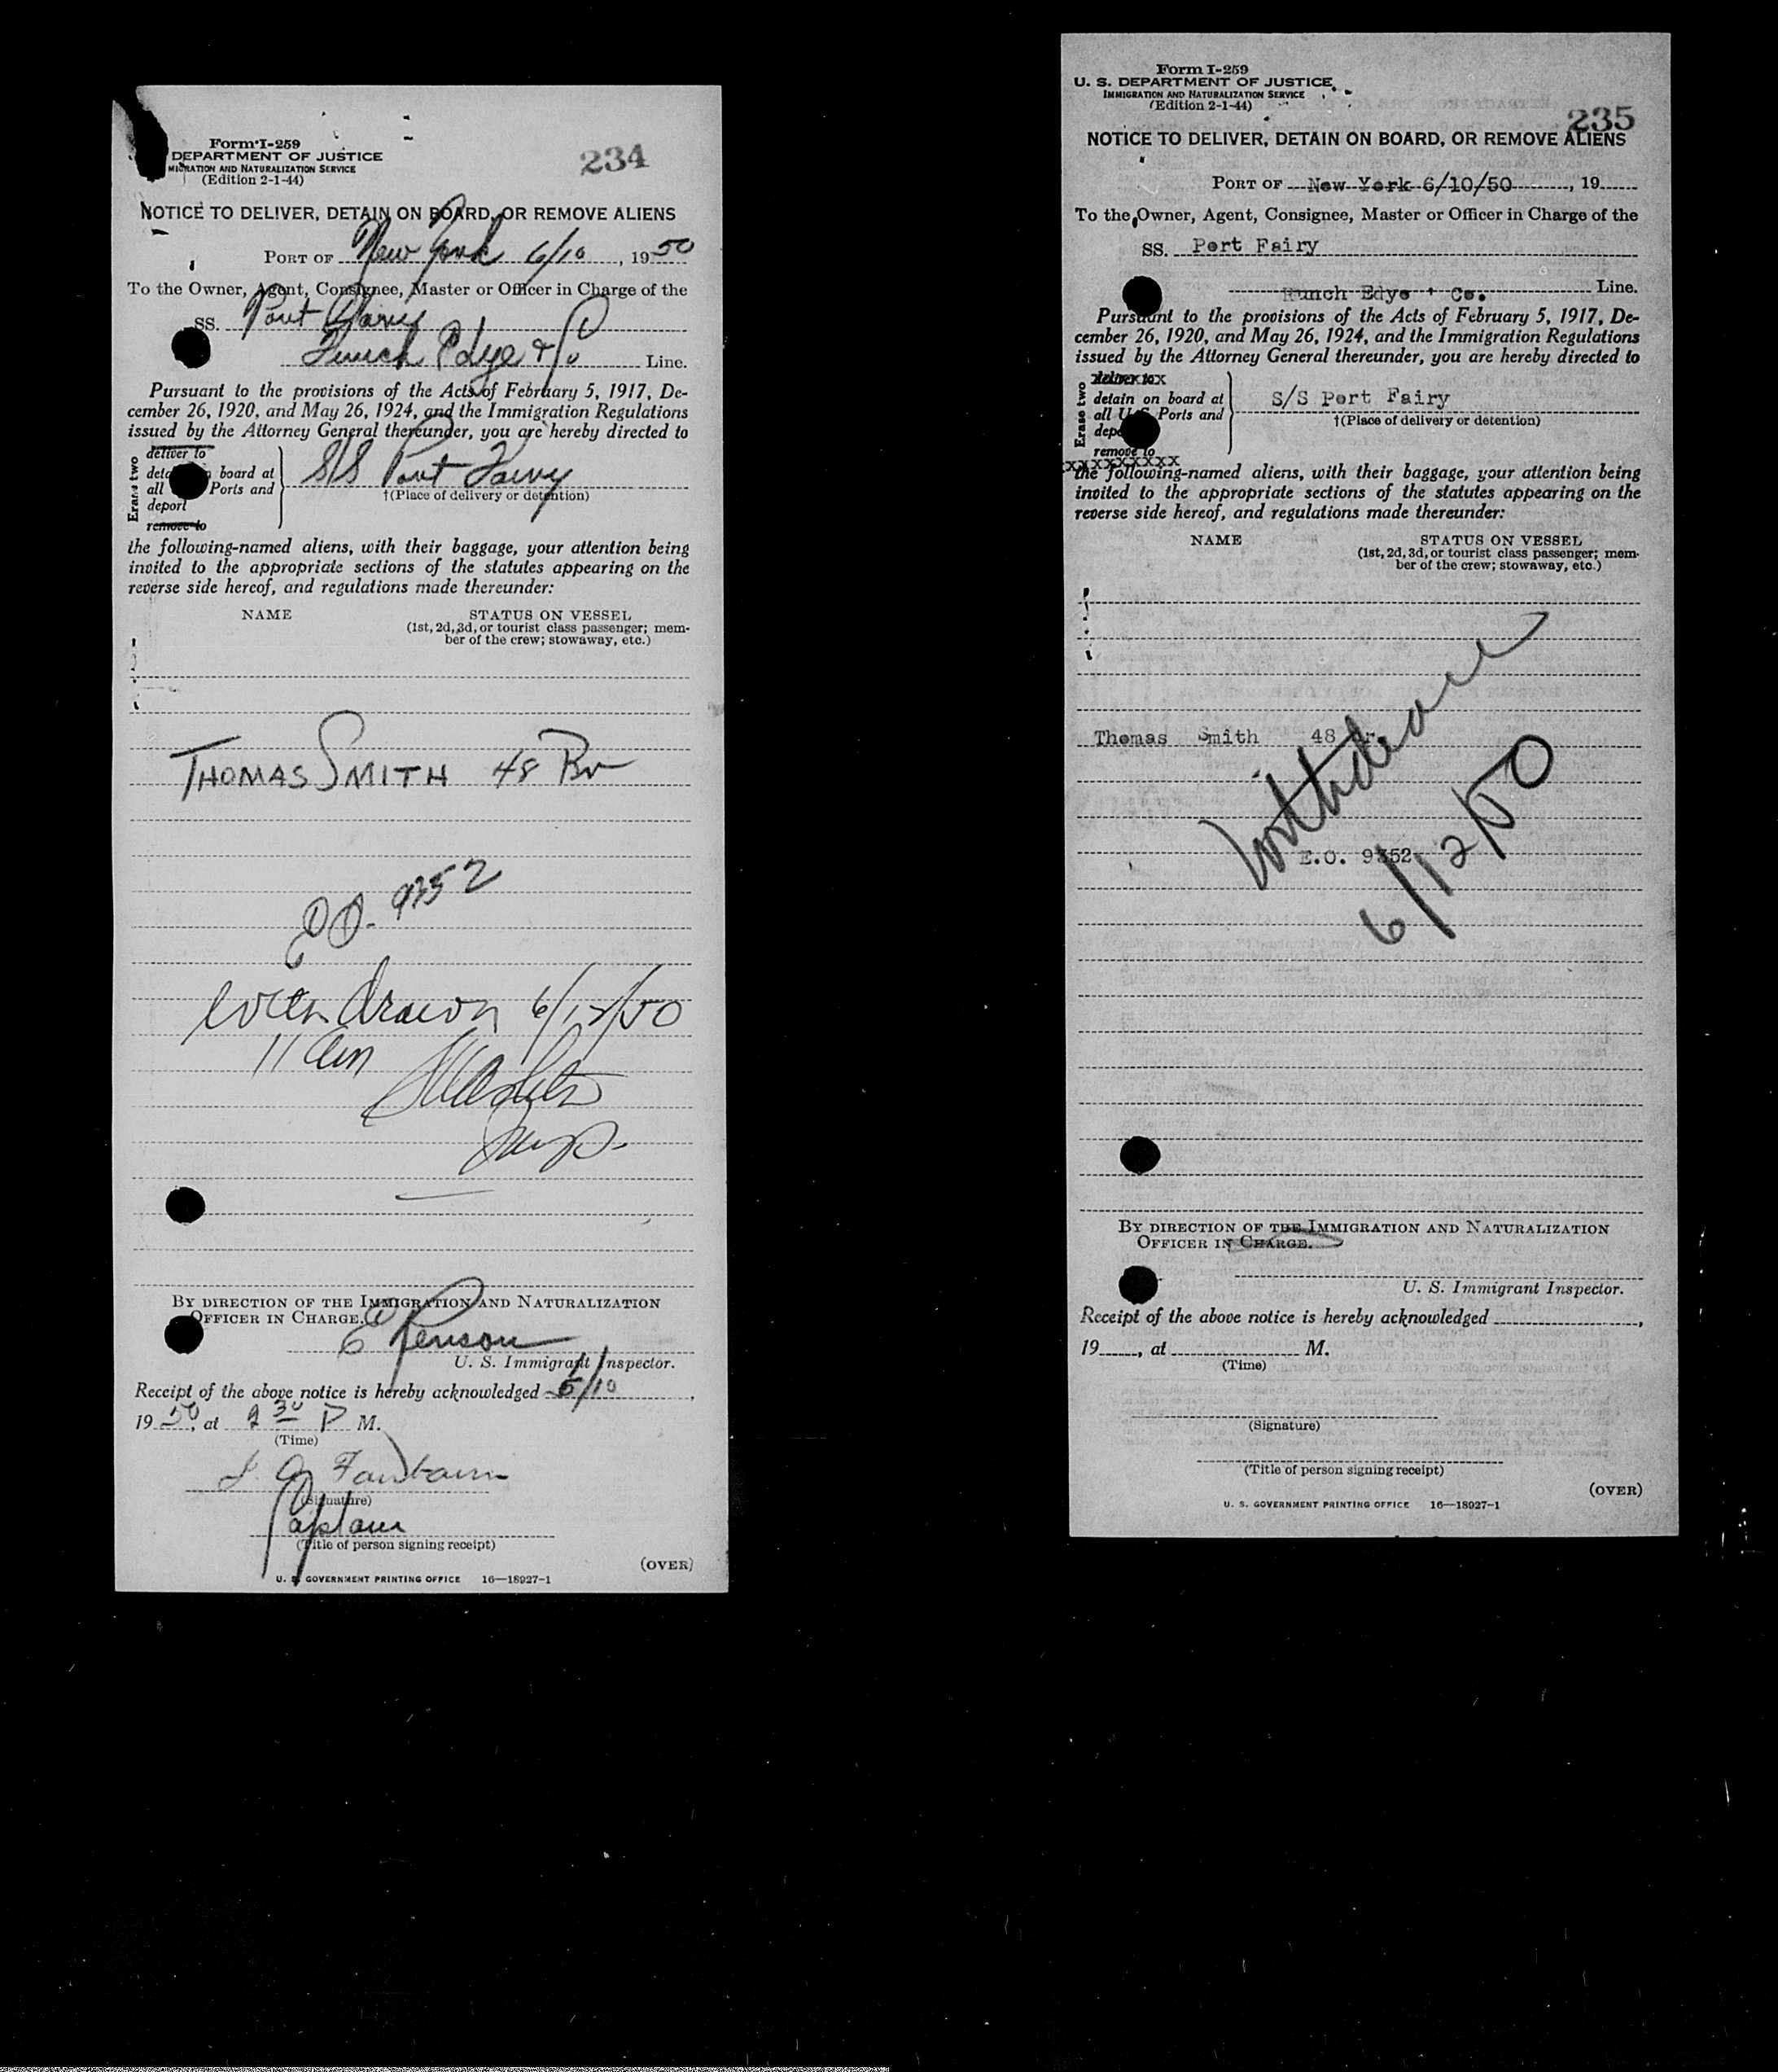 Form I-259
DEPARTMENT OF JUSTICE
MIGRATION AND NATURALIZATION SERVICE
(Edition 2-1-44)
234
NOTICE TO DELIVER, DETAIN ON BOARD, OR REMOVE ALIENS
PORT OF New York 6/10, 1950
To the Owner, Agent, Consignee, Master or Officer in Charge of the
SS. Port Fairy
Funch Edye & Co Line.
Pursuant to the provisions of the Acts of February 5, 1917, De-
cember 26, 1920, and May 26, 1924, and the Immigration Regulations
issued by the Attorney General thereunder, you are hereby directed to
Erase two
deliver to
board at
all Ports and
deport
remove to
S/S Port Fairy
†(Place of delivery or detention)
the following-named aliens, with their baggage, your attention being
invited to the appropriate sections of the statutes appearing on the
reverse side hereof, and regulations made thereunder:
NAME STATUS ON VESSEL
(1st, 2d, 3d, or tourist class passenger; mem-
ber of the crew; stowaway, etc.)
THOMAS SMITH 48 Br
EO. 9352
withdrawn 6/12/50
11 am
Insp.
BY DIRECTION OF THE IMMIGRATION AND NATURALIZATION
OFFICER IN CHARGE.
U. S. Immigrant Inspector.
Receipt of the above notice is hereby acknowledged 6/10,
1950, at 2 30 P M.
(Time)
(Signature)
Captain
(Title of person signing receipt)
(OVER)
U. S. GOVERNMENT PRINTING OFFICE 16—18927-1
Form I-259
U. S. DEPARTMENT OF JUSTICE
IMMIGRATION AND NATURALIZATION SERVICE
(Edition 2-1-44)
235
NOTICE TO DELIVER, DETAIN ON BOARD, OR REMOVE ALIENS
PORT OF New York 6/10/50, 19
To the Owner, Agent, Consignee, Master or Officer in Charge of the
SS. Port Fairy
Funch Edye & Co. Line.
Pursuant to the provisions of the Acts of February 5, 1917, De-
cember 26, 1920, and May 26, 1924, and the Immigration Regulations
issued by the Attorney General thereunder, you are hereby directed to
Erase two
deliver to
detain on board at
all U.S. Ports and
remove to
xxxxxxxxxx
S/S Port Fairy
†(Place of delivery or detention)
the following-named aliens, with their baggage, your attention being
invited to the appropriate sections of the statutes appearing on the
reverse side hereof, and regulations made thereunder:
NAME STATUS ON VESSEL
(1st, 2d, 3d, or tourist class passenger; mem-
ber of the crew; stowaway, etc.)
Thomas Smith 48 Br.
Withdrawn
E.O. 9352
6/12/50
BY DIRECTION OF THE IMMIGRATION AND NATURALIZATION
OFFICER IN CHARGE.
U. S. Immigrant Inspector.
Receipt of the above notice is hereby acknowledged ,
19 , at M.
(Time)
(Signature)
(Title of person signing receipt)
(OVER)
U. S. GOVERNMENT PRINTING OFFICE 16—18927-1